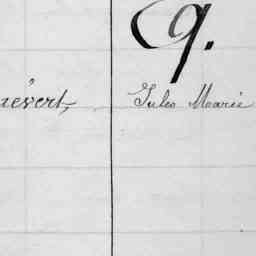 G.
névert, Jules Marie